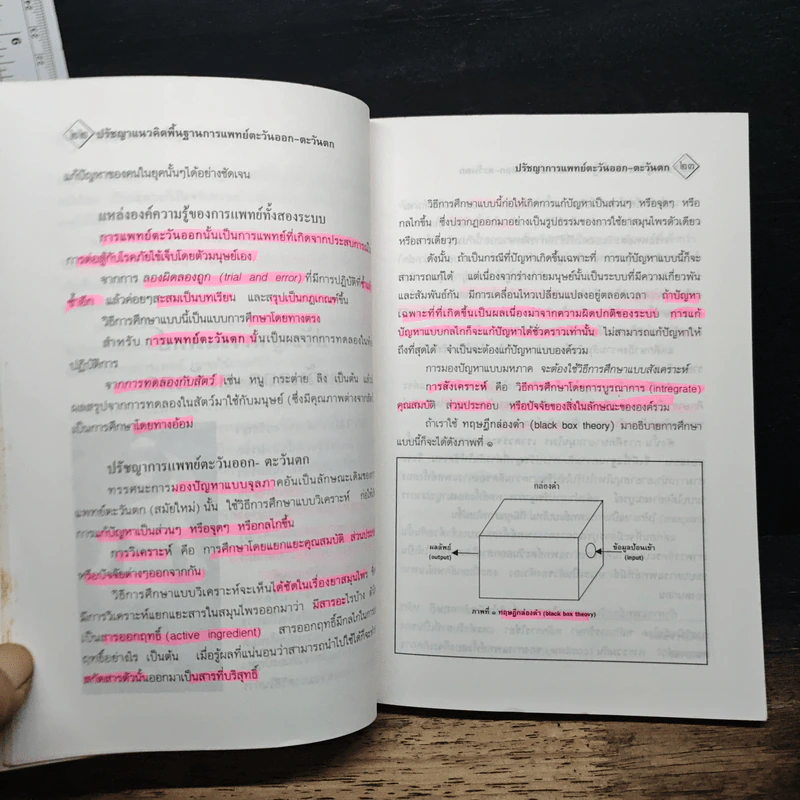 ๒๒ ปรัชญาแนวคิดพื้นฐานการแพทย์ตะวันออก-ตะวันตก
แก้ปัญหาของคนในยุคนั้นๆได้อย่างชัดเจน
แหล่งองค์ความรู้ของการแพทย์ทั้งสองระบบ
การแพทย์ตะวันออกนั้นเป็นการแพทย์ที่เกิดจากประสบการณ์ใน
การต่อสู้กับโรคภัยไข้เจ็บโดยตัวมนุษย์เอง
จากการ ลองผิดลองถูก (trial and error) ที่มีการปฏิบัติที่
ซ้ำอีก แล้วค่อยๆสะสมเป็นบทเรียน และสรุปเป็นกฎเกณฑ์ขึ้น
วิธีการศึกษาแบบนี้เป็นแบบการศึกษาโดยทางตรง
สำหรับ การแพทย์ตะวันตก นั้นเป็นผลจากการทดลองใน
ปฏิบัติการ
จากการทดลองกับสัตว์ เช่น หนู กระต่าย ลิง เป็นต้น แล้ว
ผลสรุปจากการทดลองในสัตว์มาใช้กับมนุษย์ (ซึ่งมีคุณภาพต่างจาก
เป็นการศึกษาโดยทางอ้อม
ปรัชญาการแพทย์ตะวันออก- ตะวันตก
ทรรศนะการมองปัญหาแบบจุลภาคอันเป็นลักษณะเดิมของ
แพทย์ตะวันตก (สมัยใหม่) นั้น ใช้วิธีการศึกษาแบบวิเคราะห์ ก่อให้
การแก้ปัญหาเป็นส่วนๆ หรือจุดๆ หรือกลไกขึ้น
การวิเคราะห์ คือ การศึกษาโดยแยกแยะคุณสมบัติ ส่วนประ
หรือปัจจัยต่างๆออกจากกัน
วิธีการศึกษาแบบวิเคราะห์จะเห็นได้ชัดในเรื่องยาสมุนไพร
มีการวิเคราะห์แยกแยะสารในสมุนไพรออกมาว่า มีสารอะไรบ้าง
เป็นสารออกฤทธิ์ (active ingredient) สารออกฤทธิ์มีกลไกใน
ฤทธิ์อย่างไร เป็นต้น เมื่อรู้ผลที่แน่นอนว่าสามารถนำไปใช้ได้ก็จะ
สกัดสารตัวนั้นออกมาเป็นสารที่บริสุทธิ์
ปรัชญาการแพทย์ตะวันออก-ตะวันตก ๒๓
วิธีการศึกษาแบบนี้ก่อให้เกิดการแก้ปัญหาเป็นส่วนๆ หรือจุดๆ หรือ
กลไกขึ้น ซึ่งปรากฏออกมาอย่างเป็นรูปธรรมของการใช้ยาสมุนไพรตัวเดียว
หรือสารเดี่ยวๆ
ดังนั้น ถ้าเป็นกรณีที่ปัญหาเกิดขึ้นเฉพาะที่ การแก้ปัญหาแบบนี้ก็จะ
สามารถแก้ได้ แต่เนื่องจากร่างกายมนุษย์นั้นเป็นระบบที่มีความเกี่ยวพัน
และสัมพันธ์กัน มีการเคลื่อนไหวเปลี่ยนแปลงอยู่ตลอดเวลา ถ้าปัญหา
เฉพาะที่ที่เกิดขึ้นเป็นผลเนื่องมาจากความผิดปกติของระบบ การแก้
ปัญหาแบบกลไกก็จะแก้ปัญหาได้ชั่วคราวเท่านั้น ไม่สามารถแก้ปัญหาให้
ถึงที่สุดได้ จำเป็นจะต้องแก้ปัญหาแบบองค์รวม
การมองปัญหาแบบมหภาค จะต้องใช้วิธีการศึกษาแบบสังเคราะห์
การสังเคราะห์ คือ วิธีการศึกษาโดยการบูรณาการ (intregrate)
คุณสมบัติ ส่วนประกอบ หรือปัจจัยของสิ่งในลักษณะขององค์รวม
ถ้าเราใช้ ทฤษฎีกล่องดำ (black box theory) มาอธิบายการศึกษา
แบบนี้ก็จะได้ดังภาพที่ ๑
กล่องดำ
ผลลัพธ์ (output)
ข้อมูลป้อนเข้า (input)
ภาพที่ ๑ ทฤษฎีกล่องดำ (black box theory)